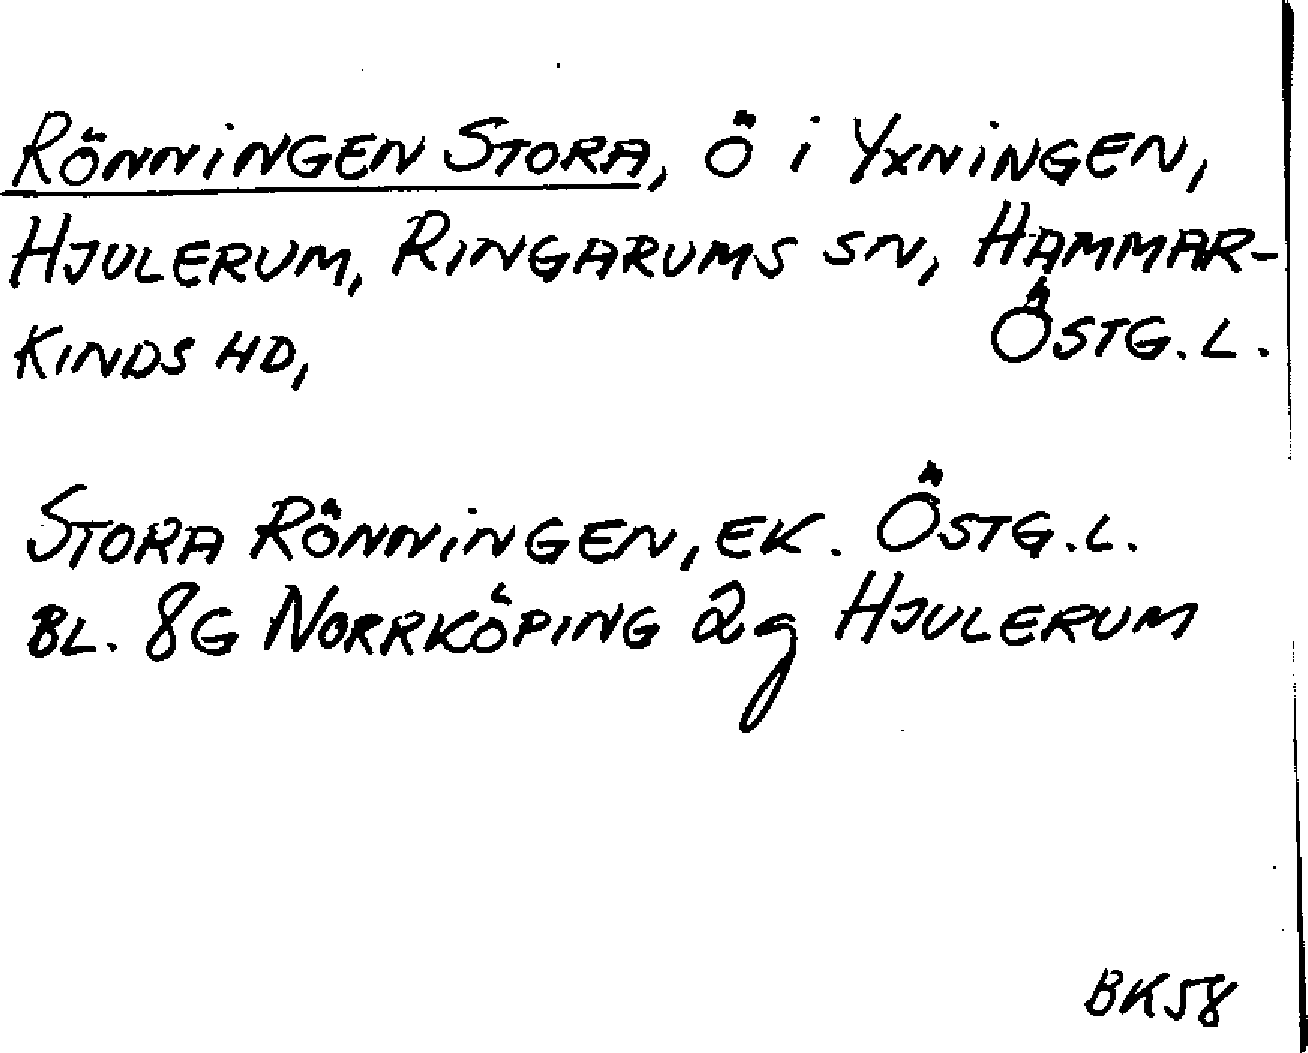 RÖNNINGEN STORA, Ö i YXNINGEN,
HJULERUM, RINGARUMS SN, HAMMAR-
KINDS HD, ÖSTG.L.
STORA RÖNNINGEN, EK. ÖSTG.L.
BL. 8G NORRKÖPING 2g HJULERUM
BK58